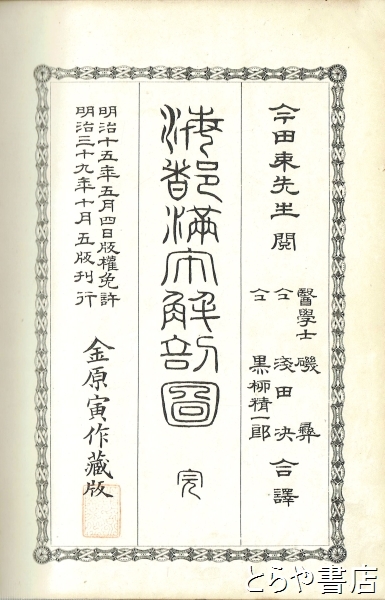 今田束先生閲
醫學士 磯 彝
仝 淺田决 合譯
仝 黒柳精一郎
海都滿氏解剖圖 完
明治十五年五月四日版權免許
明治三十九年十月五版刊行
金原寅作藏版
とらや書店